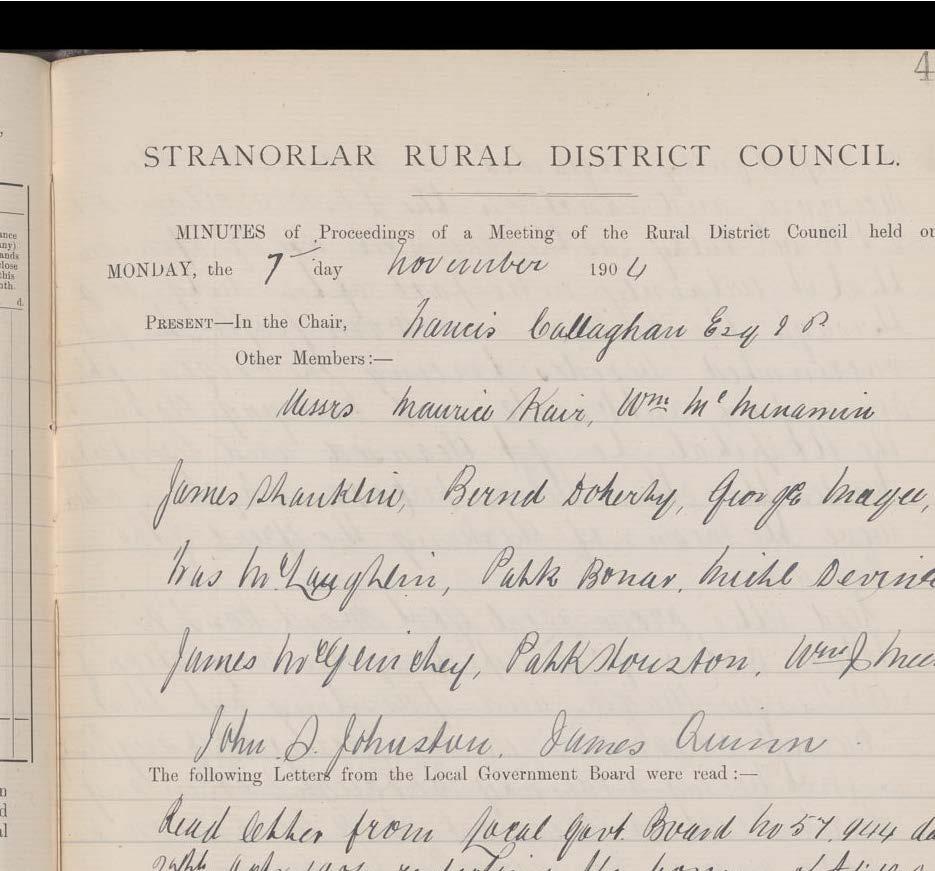 4
STRANORLAR RURAL DISTRICT COUNCIL.
MINUTES of Proceedings of a Meeting of the Rural District Council held on
MONDAY, the 7th day November 1904
PRESENT—In the Chair, Francis Callaghan Esq J P.
Other Members:—
Messrs Maurice Kair, Wm McMenamin
James Shanklin, Bernd Doherty, George Magee,
Fras McLaughlin, Patk Bonar, Michl Devine
James McGlinchey, Patk Houston, Wm J
John S. Johnston, James Quinn.
The following Letters from the Local Government Board were read:—
Read letter from Local Govt. Board No 57,944